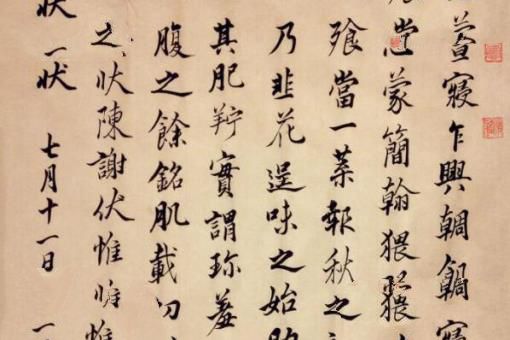 寢乍興輖
蒙簡翰猥
飱當一葉報秋之
乃韭花逞味之始
其肥羜實謂珍羞
腹之餘銘肌載切
之狀陳謝伏惟
狀 一狀 七月十一日